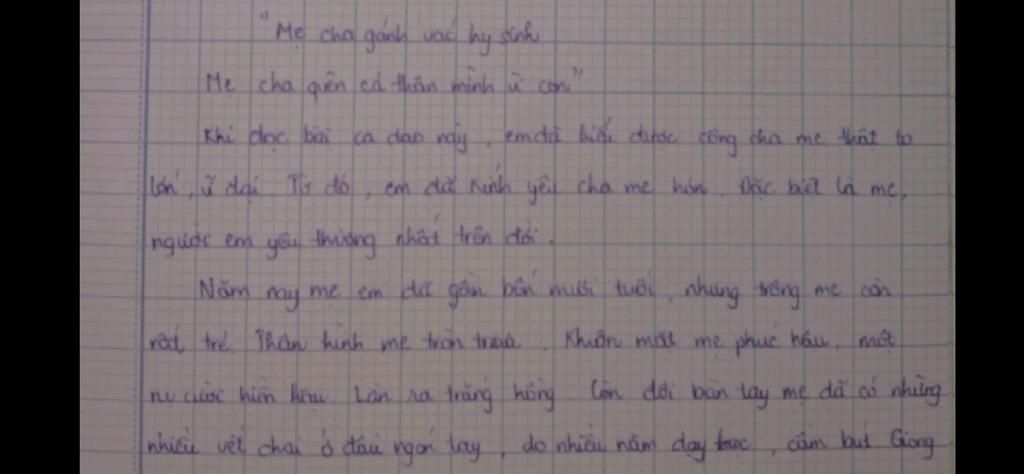 "Mẹ cha gánh vác hy sinh
Mẹ cha quên cả thân mình vì con"
Khi đọc bài ca dao này, em đã hiểu được công cha mẹ thật to
lớn, vĩ đại. Từ đó, em đã kính yêu cha mẹ hơn. Đặc biệt là mẹ,
người em yêu thương nhất trên đời.
Năm nay mẹ em đã gần bốn mươi tuổi, nhưng trông mẹ còn
rất trẻ. Thân hình mẹ tròn trịa. Khuôn mặt mẹ phúc hậu, một
nụ cười hiền hậu. Làn da trắng hồng. Còn đôi bàn tay mẹ đã có những
nhiều vết chai ở đầu ngón tay, do nhiều năm dạy học, cầm bút. Giọng